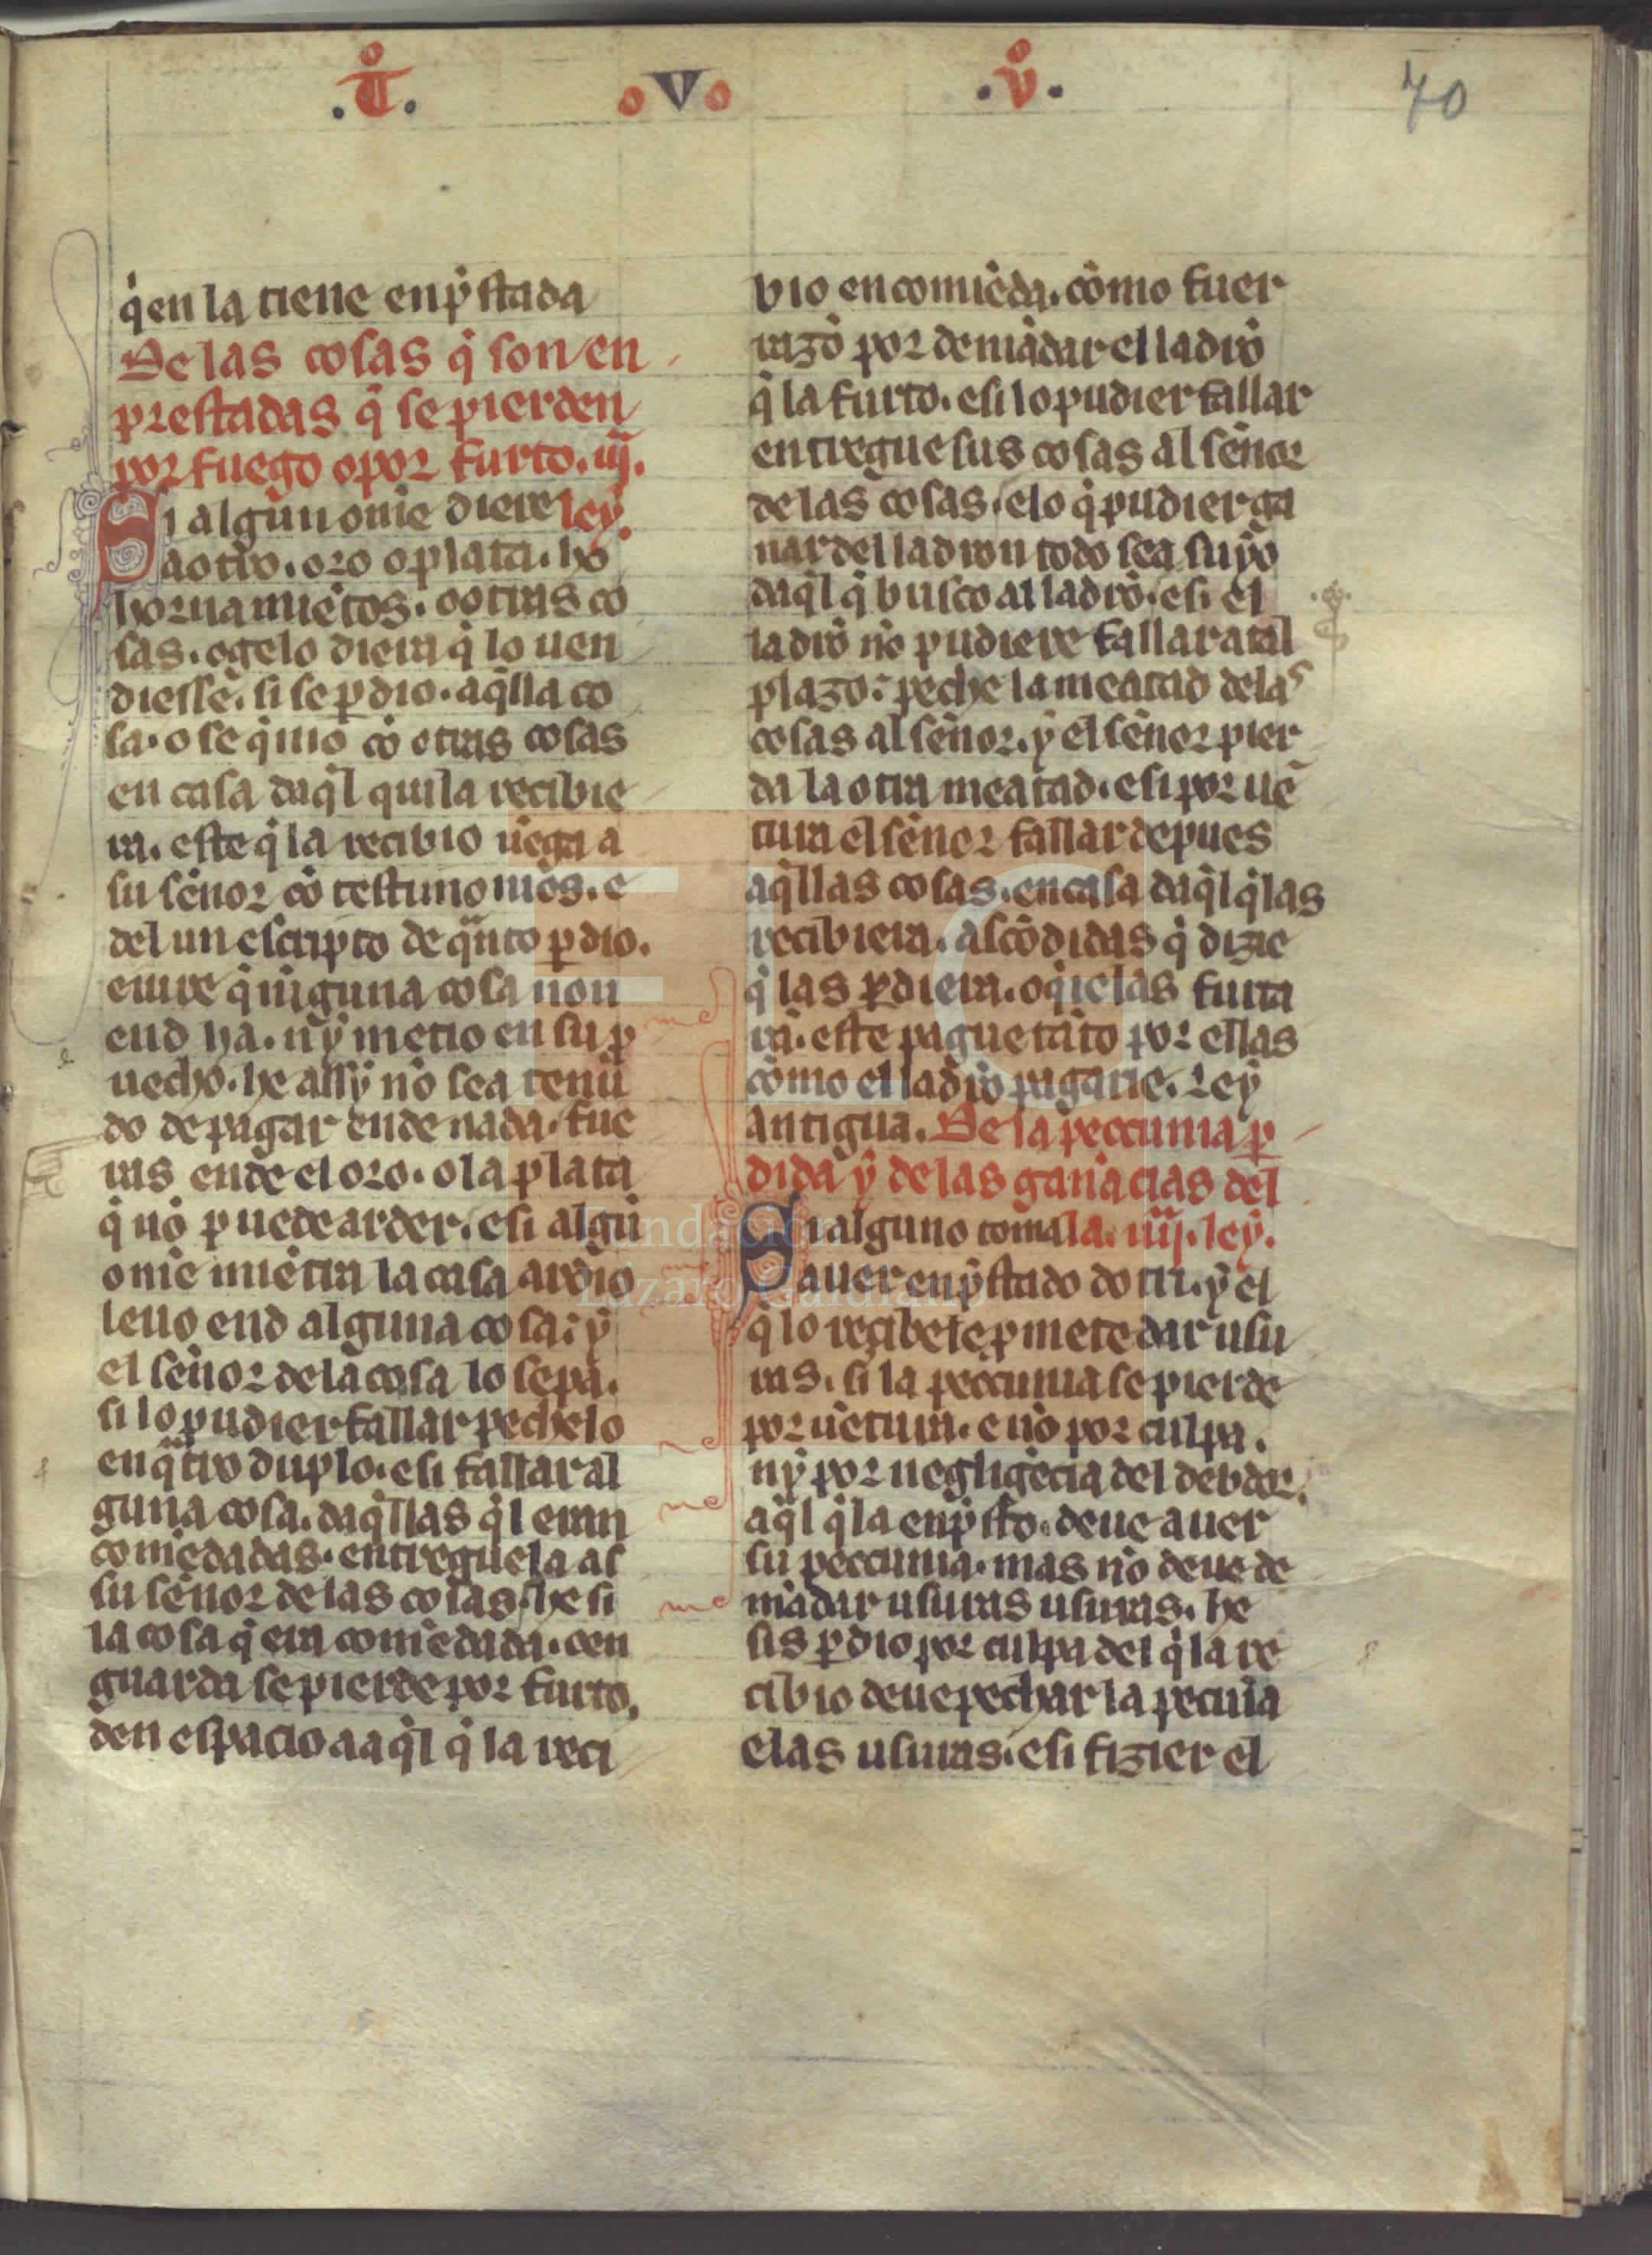 .Tͦ. oVo .vͦ. 70
qͥen la tiene enp̃stada
De las cosas q̃ son en
prestadas q̃ se pierden
por fuego o por furto. iij.
Si algun om̃e diere ley.
a otro. oro o plata. ho
hornamiẽtos. o otras co
sas. o gelo diera q̃ lo uen
diesse. si se ꝑdio. aq̃lla co
sa. o se q̃mo cõ otras cosas
en casa daq̃l qui la recibie
ra. este q̃ la recibio uẽga a
su señor cõ testimonios. e
del un escripto de qͣnto ꝑdio.
e iure q̃ nĩguna cosa non
end ha. nȳ metio en su ꝓ
uecho. he assȳ nõ sea tenu
do de pagar ende nada. fue
ras ende el oro. o la plata
q̃ nõ puede arder. e si algũ
om̃e miẽtra la casa ardio
leuo end alguna cosa: ȳ
el señor de la casa lo sepa.
si lo pudier fallar pechelo
en qͣtro duplo. e si fallar al
guna cosa. daq̃llas q̃l eran
comẽdadas. entreguela al
su señor de las cosas. he si
la cosa q̃ era comẽdada. o en
guarda se pierde por furto.
den espacio a aq̃l q̃ la reci
bio en comiẽda. cõmo fuer
razõ por demãdar el ladrõ
q̃ la furto. e si lo pudier fallar
entregue sus cosas al señor
de las cosas. e lo q̃ pudier ga
nar del ladron todo sea suyo
daq̃l q̃ busco al ladrõ. e si el
ladrõ nõ pudiere fallar atal
plazo: peche la meatad de las
cosas al señor. ȳ el señor pier
da la otra meatad. e si por uẽ
tura el señor fallar depues
aq̃llas cosas. en casa daq̃l q̃ las
recibiera. ascõdidas q̃ dizie
q̃ las ꝑdiera. o qͥ ie las furta
rã. este pague tãto por ellas
cõmo el ladrõ pagarie. Ley
antigua. De la peccunia ꝑ
dida ȳ de las ganãcias del
Si alguno toma la. iiij. ley.
auer enp̃stado dotri. ȳ el
q̃ lo recibe le ꝓmete dar usu
ras. si la peccunia se pierde
por uẽtura. e nõ por culpa.
nȳ por negligẽcia del debdor.
aq̃l q̃ la enp̃sto. deue auer
su peccunia. mas nõ deue de
mãdar usuras usuras. he
sis ꝑdio por culpa del q̃ la re
cibio deue pechar la pecuña
e las usuras. e si fizier el
Fundación
Lázaro Galdiano